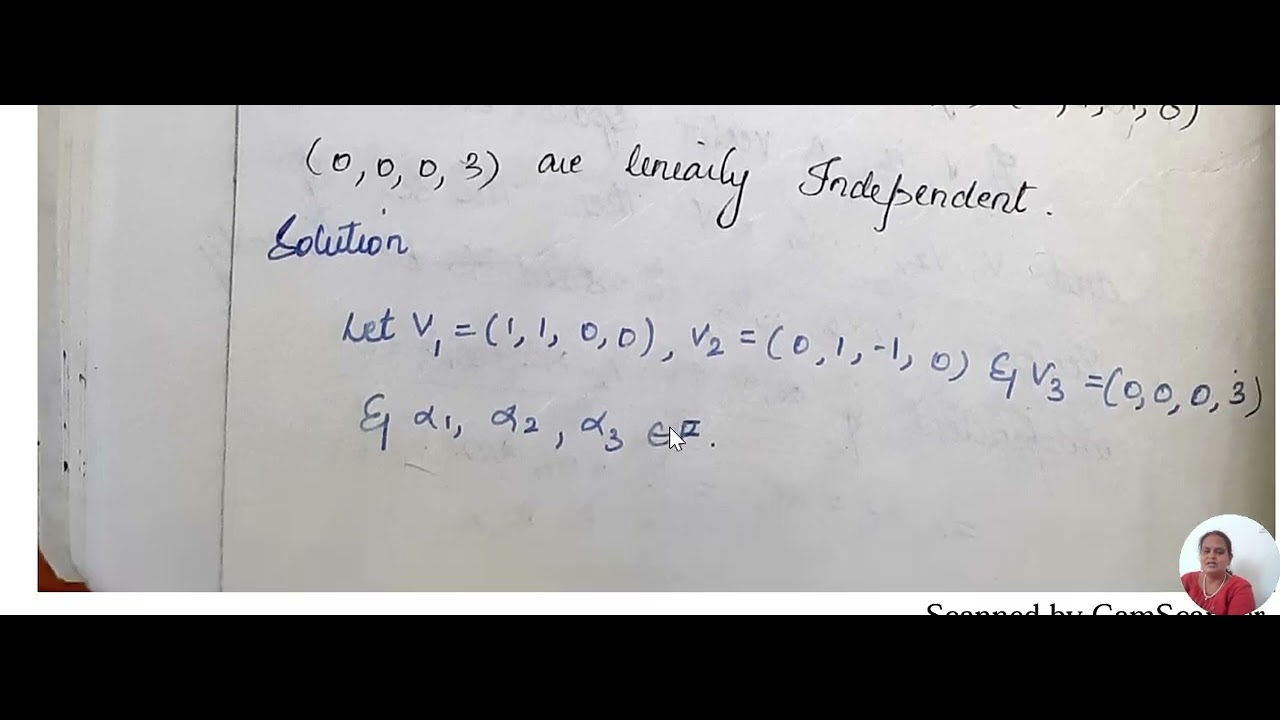 (0, 0, 0, 3) are linearly Independent.
Solution
Let V₁ = (1, 1, 0, 0), V₂ = (0, 1, -1, 0) & V₃ = (0, 0, 0, 3)
& α1, α2, α3 ∈ F.
Scanned by CamScanner